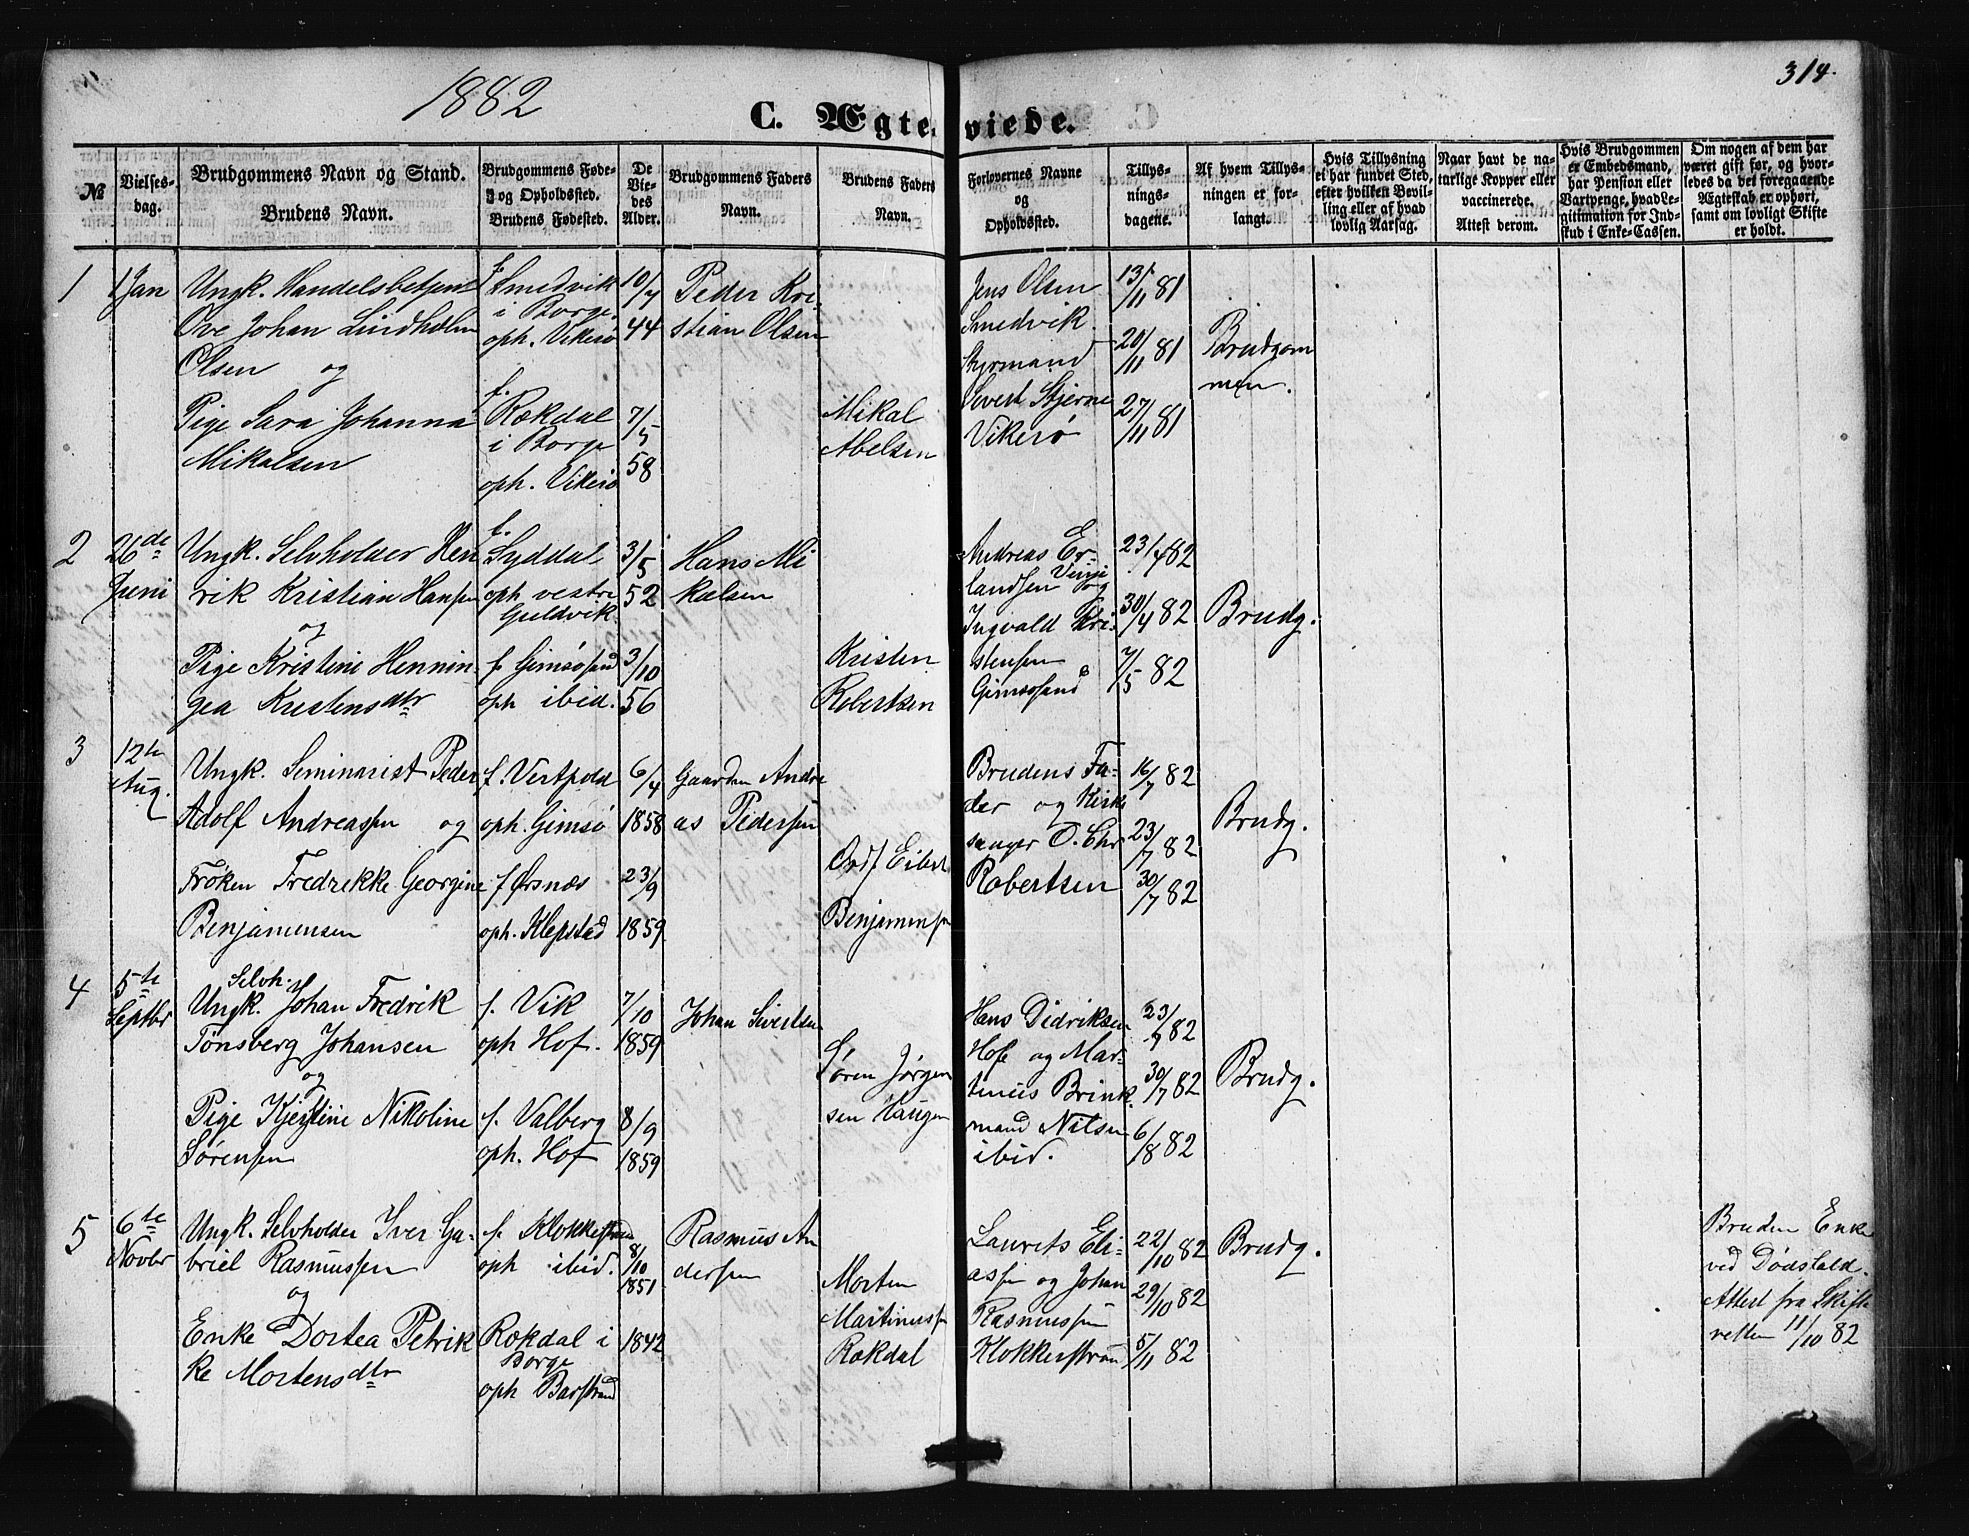 1882
314.
C. Ægteviede.
№
Vielsesdag.
Brudgommens Navn og Stand.
Brudens Navn.
Brudgommens Føde- og Opholdssted.
Brudens Fødested.
De Viedes Alder.
Brudgommens Faders Navn.
Brudens Faders Navn.
Forlovernes Navne og Opholdssted.
Tillysningsdagene.
Af hvem Tillysningen er forlangt.
Hvis Tillysning ei har fundet Sted, efter hvilken Bevilling eller af hvad lovlig Aarsag.
Naar havt de naturlige Kopper eller vaccinerede. Attest derom.
Hvis Brudgommen er Embedsmand, har Pension eller Vartpenge, hvad Legitimation for Indskud i Enke-Cassen.
Om nogen af dem har været gift før, og hvorledes da det foregaaende Ægteskab er ophørt, samt om lovligt Skifte er holdt.
1
1 Jan
Ungk. Handelsbetjent
Ove Johan Lindholm
Olsen og
Pige Sara Johanna
Mikalsen
f. Smedvik
i Borge
oph. Vikerø
f.
Rækdal
i Borge
oph. Vikerø
10/7
44
7/5
58
Peder Kri-
stian Olsen
Mikal
Abelsen
Jens Olsen
Smedvik
Styrmand
Sivert Stjerne
Vikerø
13/11 81
20/11 81
27/11 81
Brudgom
men.
2
26de
Juni
Ungk. Selvholder Hen
rik Kristian Hansen
og
Pige Kristine Hennin
gea Kristensdtr
f.
Lyddal
oph vestre
Guldvik
f Gimsøsand
oph ibid.
3/5
52
3/10
56
Hans Mi
kælsen
Kristen
Robertsen
Andreas Er-
landsen og
Ingvald Kri-
stensen
Gimsøsand
23/4 82
30/4 82
7/5 82
Brudg.
3
12te
Aug.
Ungk. Seminarist Peder
Adolf Andreassen og
Frøken Fredrekke Georgine
Benjamensen
f. Vestpold
oph. Gimsø
f Ørsnæs
oph. Klepstad
6/4
1858
23/9
1859
Gaardm Andre
as Pedersen
Ordf Eibert
Benjamensen
Brudens Fa-
der og Kirke
sanger O. Chr
Robertsen
16/7 82
23/7 82
30/7 82
Brudg.
4
5te
Septbr
Selvh.
Ungk. Johan Fredrik
Tønsberg Johansen
og
Pige Kjerstine Nikoline
Sørensen
f. Vik
oph Hof.
f. Valberg
oph. Hof
7/10
1859
8/9
1859
Johan Sivertsen
Søren Jørgen
sen Haugen
Hans Didriksen
Hofe og Mar-
tinus Brink
mand Nilsen
ibid.
23/7 82
30/7 82
6/8 82
Brudg.
5
6te
Novbr
Ungk. Selvholder Iver Ga-
briel Rasmussen
og
Enke Dortea Petrik
ke Mortensdtr
f. Klokkerstrand
oph ibid.
Rækdal i
Borge
oph Barstrand
8/10
1851
1842
Rasmus An
dersen
Morten
Martinussen
Rækdal
Laurets Eli-
assen og Johan
Rasmussen
Klokkerstrand
22/10 82
29/10 82
5/11 82
Brudg.
Bruden Enke
ved Dødsfald.
Attest fra Skifte
retten 11/10 82